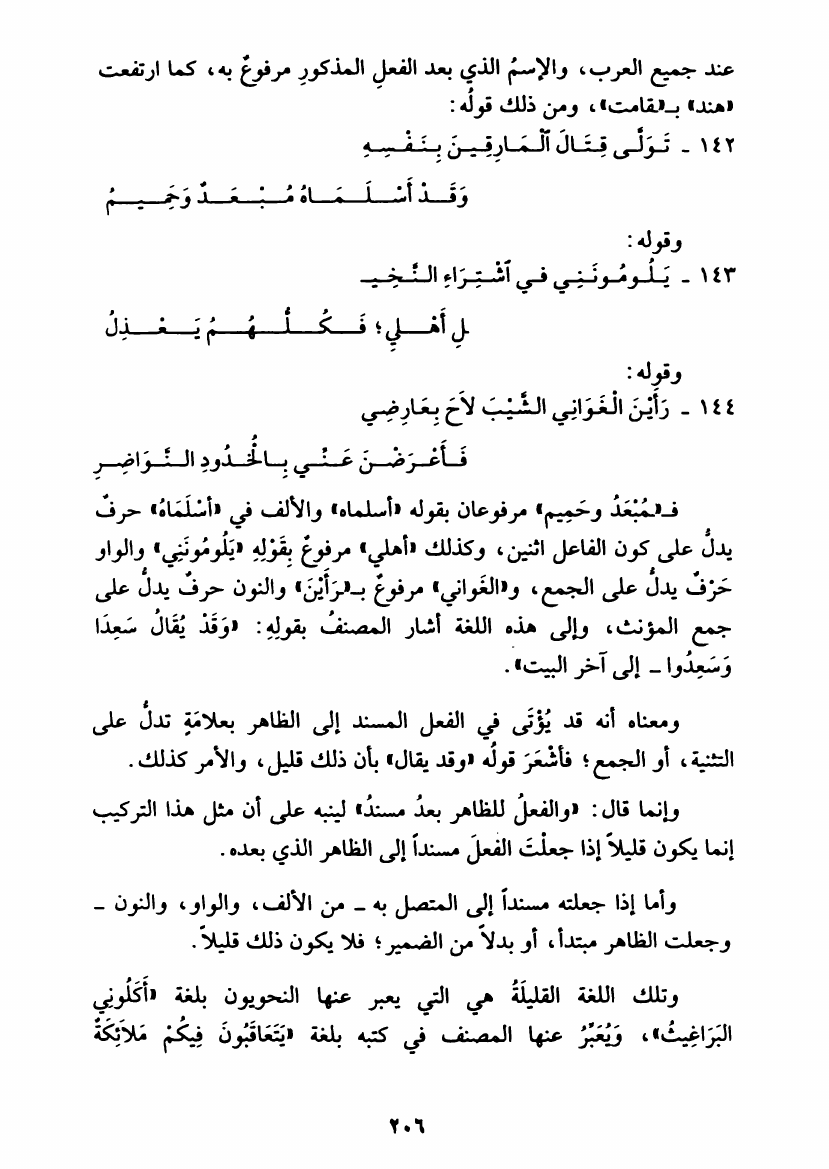 عند جميع العرب، والإسمُ الذي بعد الفعلِ المذكورِ مرفوعٌ به، كما ارتفعت
«هند» بـ«قامت»، ومن ذلك قولُه:
١٤٢ - تَوَلَّى قِتَالَ ٱلْمَارِقِينَ بِنَفْسِهِ
وَقَدْ أَسْلَمَاهُ مُبْعَدٌ وَحَمِيمُ
وقوله:
١٤٣ - يَلُومُونَنِي في ٱشْتِرَاءِ النَّخِيـ
ـلِ أَهْلِي؛ فَكُلُّهُمُ يَعْذِلُ
وقوله:
١٤٤ - رَأَيْنَ الْغَوَانِي الشَّيْبَ لاَحَ بِعَارِضِي
فَأَعْرَضْنَ عَنِّي بِالْخُدُودِ النَّوَاضِرِ
فـ«مُبْعَدُ وحَمِيم» مرفوعان بقوله «أسلماه» والألف في «أسْلَمَاهُ» حرفٌ
يدلُّ على كون الفاعل اثنين، وكذلك «أهلي» مرفوعٌ بِقَوْلِهِ «يَلُومُونَنِي» والواو
حَرْفٌ يدلُّ على الجمع، و«الغَواني» مرفوعٌ بـ«رَأَيْنَ» والنون حرفٌ يدلُّ على
جمع المؤنث، وإلى هذه اللغة أشار المصنفُ بقولِهِ: «وَقَدْ يُقَالُ سَعِدَا
وَسَعِدُوا - إلى آخر البيت».
ومعناه أنه قد يُؤْتَى في الفعل المسند إلى الظاهر بعلامَةٍ تدلُّ على
التثنية، أو الجمع؛ فأشْعَرَ قولُه «وقد يقال» بأن ذلك قليل، والأمر كذلك.
وإنما قال: «والفعلُ للظاهر بعدُ مسندُ» لينبه على أن مثل هذا التركيب
إنما يكون قليلاً إذا جعلْتَ الفعلَ مسنداً إلى الظاهر الذي بعده.
وأما إذا جعلته مسنداً إلى المتصل به - من الألف، والواو، والنون -
وجعلت الظاهر مبتدأ، أو بدلاً من الضمير؛ فلا يكون ذلك قليلاً.
وتلك اللغة القليلَةُ هي التي يعبر عنها النحويون بلغة «أَكَلُونِي
البَرَاغِيثُ»، وَيُعَبِّرُ عنها المصنف في كتبه بلغة «يَتَعَاقَبُونَ فِيكُمْ مَلاَئِكَةٌ
٢٠٦